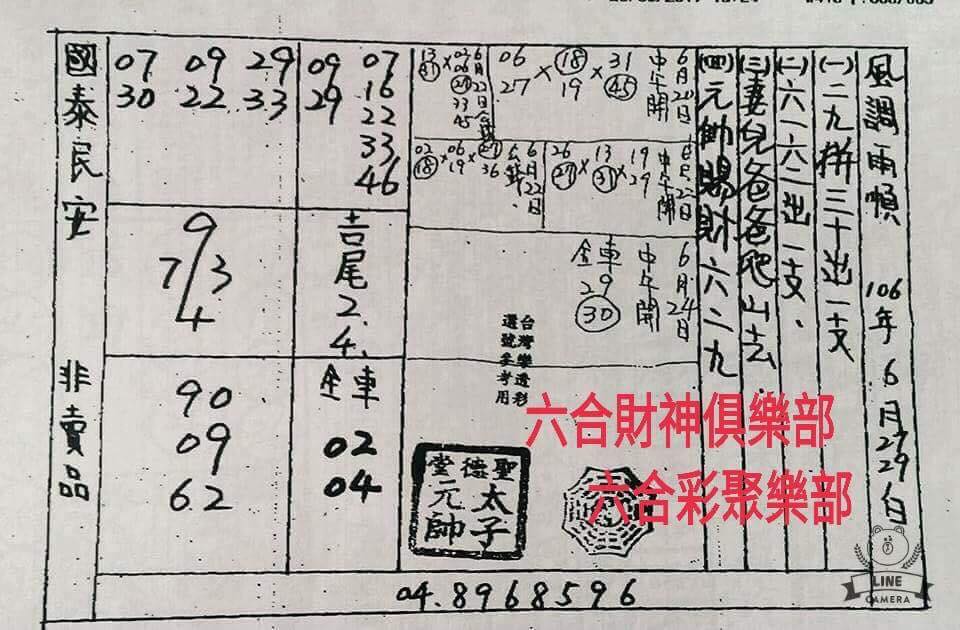 風調雨順 106年6月27 29白
(一)二九拼三十出一支
(二)六一六二出一支.
(三)妻兒爸爸爬山去.
(四)元帥賜財六二九
6月21日
中午開
06 × 18 × 31
27 19 45
6月22日
13 × 02
31 06
33
45
6月22日
中午開
26 × 13 × 19
27 31 29
6月22日
02 × 06 × 27
18 19 36
6月24日
中午開
金車
29
30
台灣樂透彩
選號參考用
聖德堂
太子
元帥
09 07
29 16
22
33
46
吉尾2.4.
金車
02
04
07 09 29
30 22 33
9
7/3
4
90
09
62
國泰民安 非賣品
04.8968596
六合財神俱樂部
六合彩聚樂部
LINE
CAMERA